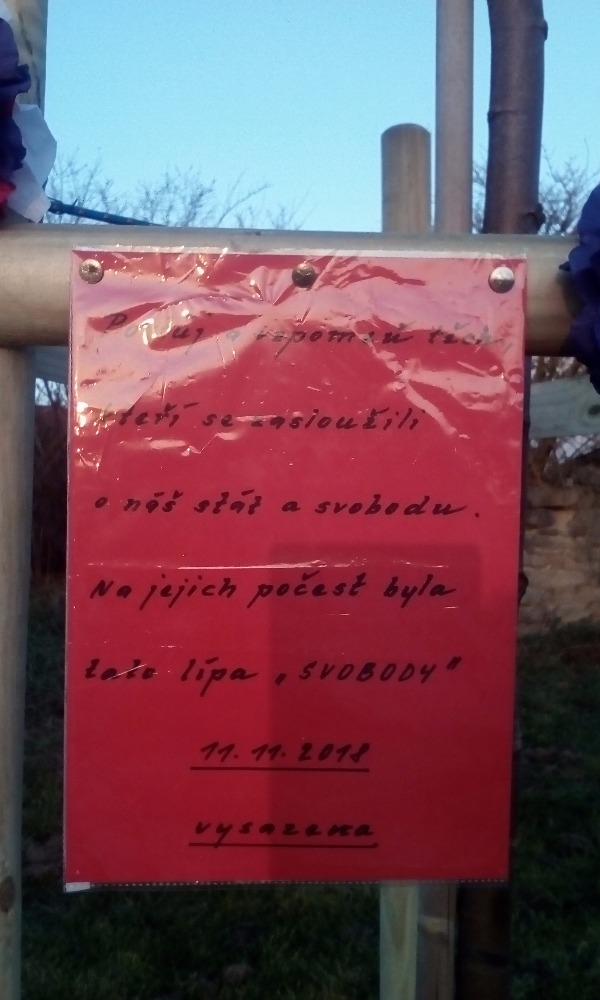 Postůj a vzpomeň těch,
kteří se zasloužili
o náš stát a svobodu.
Na jejich počest byla
tato lípa „SVOBODY"
11.11.2018
vysazena